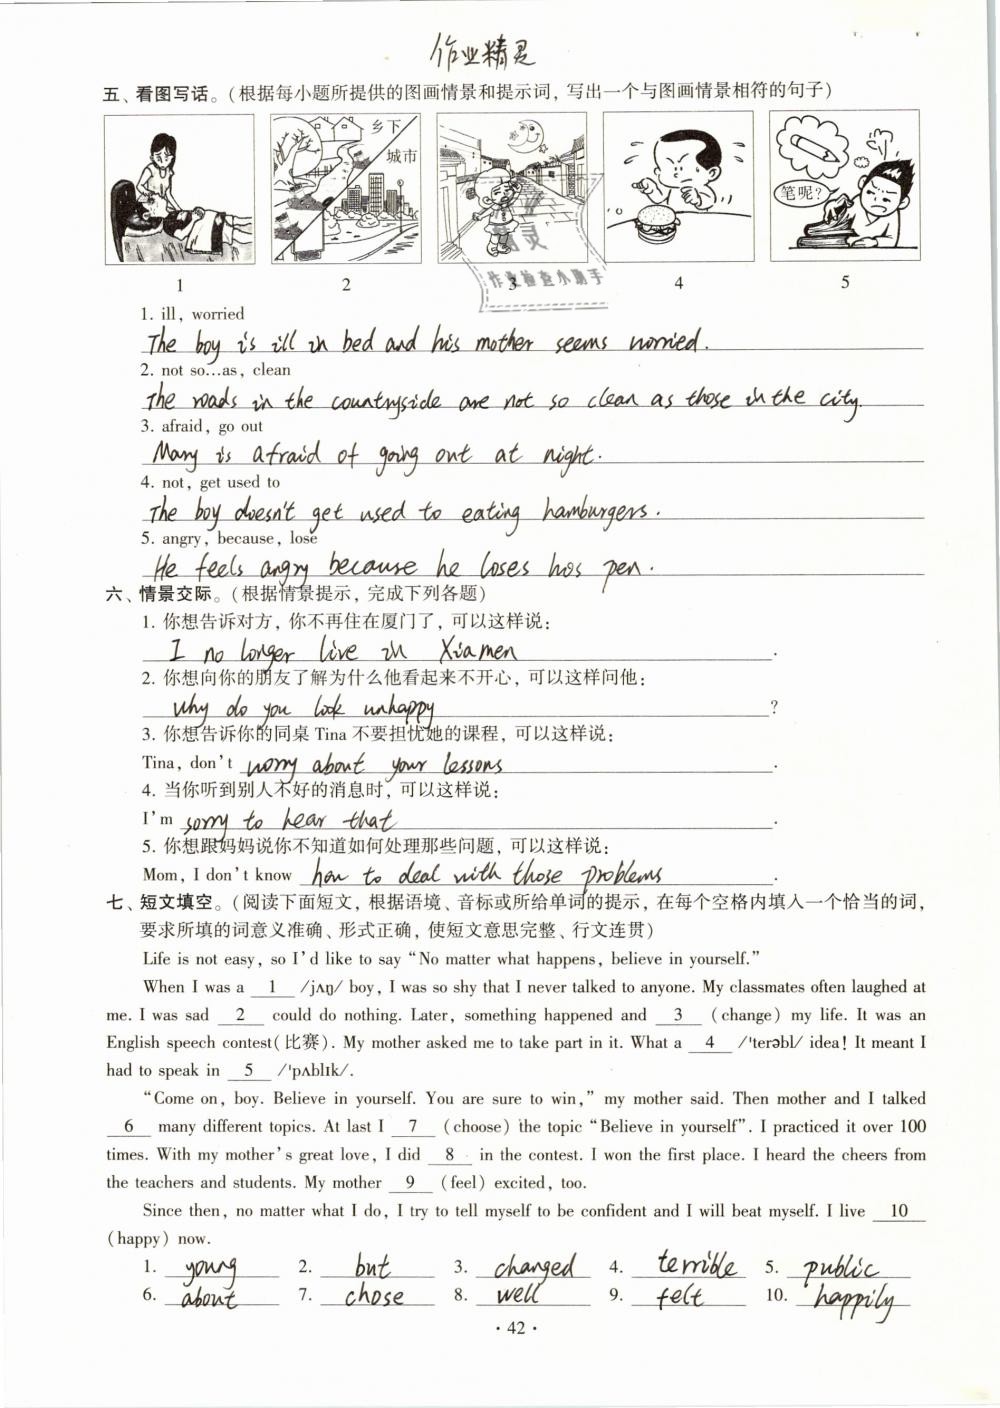 作业精灵
五、看图写话。(根据每小题所提供的图画情景和提示词，写出一个与图画情景相符的句子)
乡下
城市
笔呢?
作业检查小助手
1 2 3 4 5
1. ill, worried
The boy is ill in bed and his mother seems worried.
2. not so…as, clean
The roads in the countryside are not so clean as those in the city.
3. afraid, go out
Mary is afraid of going out at night.
4. not, get used to
The boy doesn't get used to eating hamburgers.
5. angry, because, lose
He feels angry because he loses his pen.
六、情景交际。(根据情景提示，完成下列各题)
1. 你想告诉对方，你不再住在厦门了，可以这样说:
I no longer live in Xiamen.
2. 你想向你的朋友了解为什么他看起来不开心，可以这样问他:
Why do you look unhappy?
3. 你想告诉你的同桌 Tina 不要担忧她的课程，可以这样说:
Tina, don't worry about your lessons.
4. 当你听到别人不好的消息时，可以这样说:
I'm sorry to hear that.
5. 你想跟妈妈说你不知道如何处理那些问题，可以这样说:
Mom, I don't know how to deal with those problems.
七、短文填空。(阅读下面短文，根据语境、音标或所给单词的提示，在每个空格内填入一个恰当的词，
要求所填的词意义准确、形式正确，使短文意思完整、行文连贯)
Life is not easy, so I'd like to say "No matter what happens, believe in yourself."
When I was a 1 /jʌŋ/ boy, I was so shy that I never talked to anyone. My classmates often laughed at
me. I was sad 2 could do nothing. Later, something happened and 3 (change) my life. It was an
English speech contest(比赛). My mother asked me to take part in it. What a 4 /ˈterəbl/ idea! It meant I
had to speak in 5 /ˈpʌblɪk/.
"Come on, boy. Believe in yourself. You are sure to win," my mother said. Then mother and I talked
6 many different topics. At last I 7 (choose) the topic "Believe in yourself". I practiced it over 100
times. With my mother's great love, I did 8 in the contest. I won the first place. I heard the cheers from
the teachers and students. My mother 9 (feel) excited, too.
Since then, no matter what I do, I try to tell myself to be confident and I will beat myself. I live 10
(happy) now.
1. young 2. but 3. changed 4. terrible 5. public
6. about 7. chose 8. well 9. felt 10. happily
· 42 ·